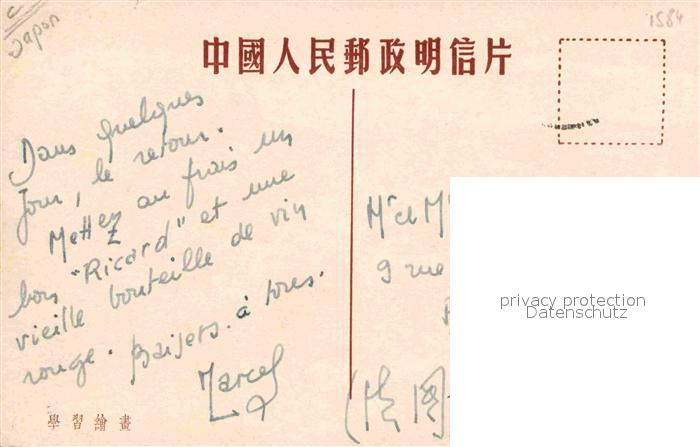 Japon
1584
中國人民郵政明信片
Dans quelques
jour, le retour.
Mettez au frais un
bon "Ricard" et une
vieille bouteille de vin
rouge. Baisers à tous.
Marcel
Mr et M
9 rue
(法国
學習繪畫
privacy protection
Datenschutz